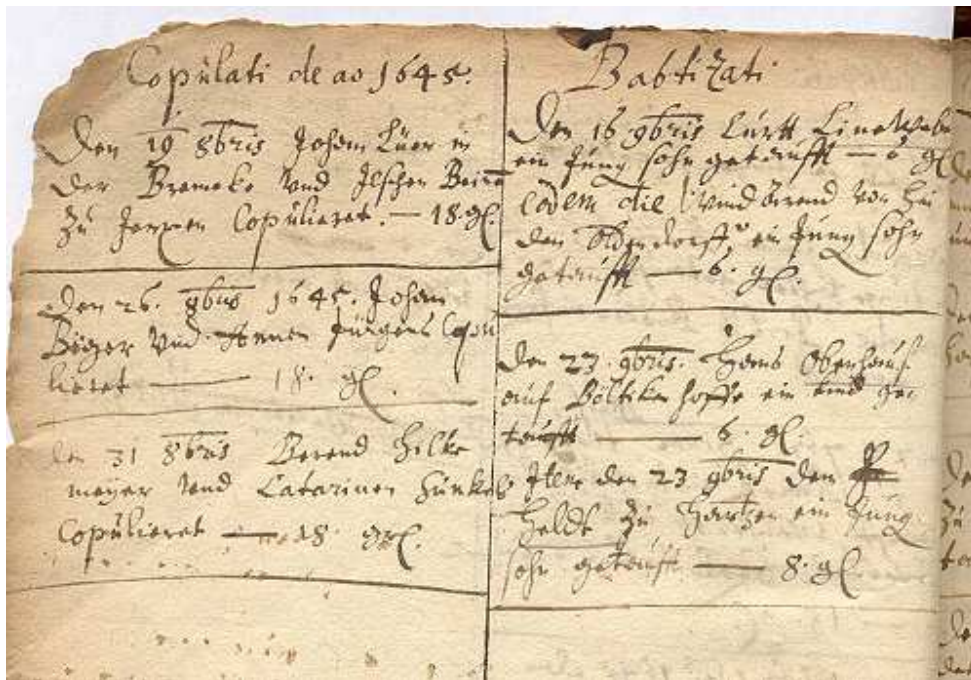 Copulati de ao 1645.
Den 19 8bris Johan Lüer in
der Bremeke Vnd Ilschen
zu Copulieret. — 18 gl
Den 26. 9bris 1645. Johan
Vnd Annen Jürgens Copu
lieret — 18. gl.
den 31 8bris Berend Hilke
meyer Vnd Catarinen Hünke
Copulieret — 18 grl.
Babtizati
Den 16 9bris Curtt Lineweber
ein Jung sohn getaufft — 6 gl
Eodem die Berend von Hid
den ein Jung sohn
getaufft — 6. gl.
Den 23. 9bris. Hans Obenhaus
auf Böltiken hoffe ein kind ge-
taufft — 6. gl.
Item den 23 9bris dem
Heldt zu ein Jung
sohn getaufft — 8. gl